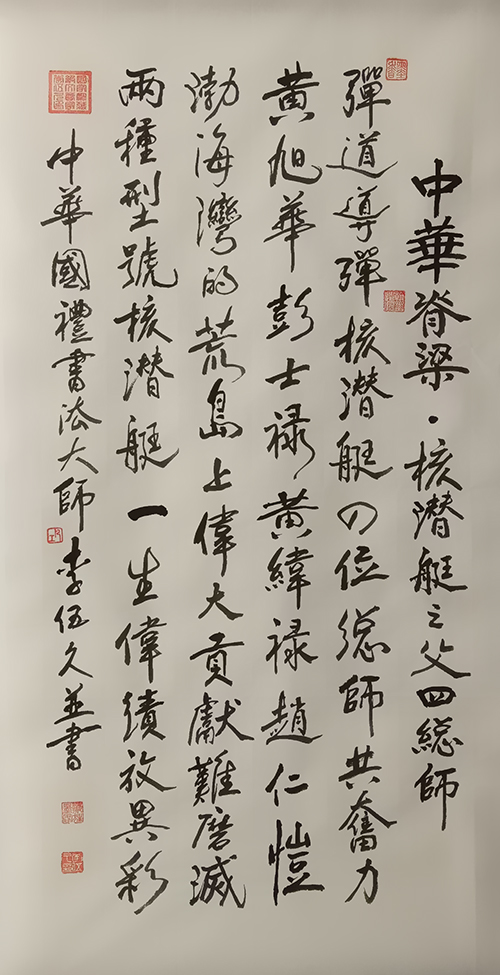 中華脊梁·核潜艇之父四総師
彈道導彈核潜艇四位総師共奮力
黄旭華彭士禄黄緯禄趙仁愷
渤海灣的荒島上偉大貢獻難磨滅
兩種型號核潜艇一生偉績放異彩
中華國禮書法大師李伍久並書